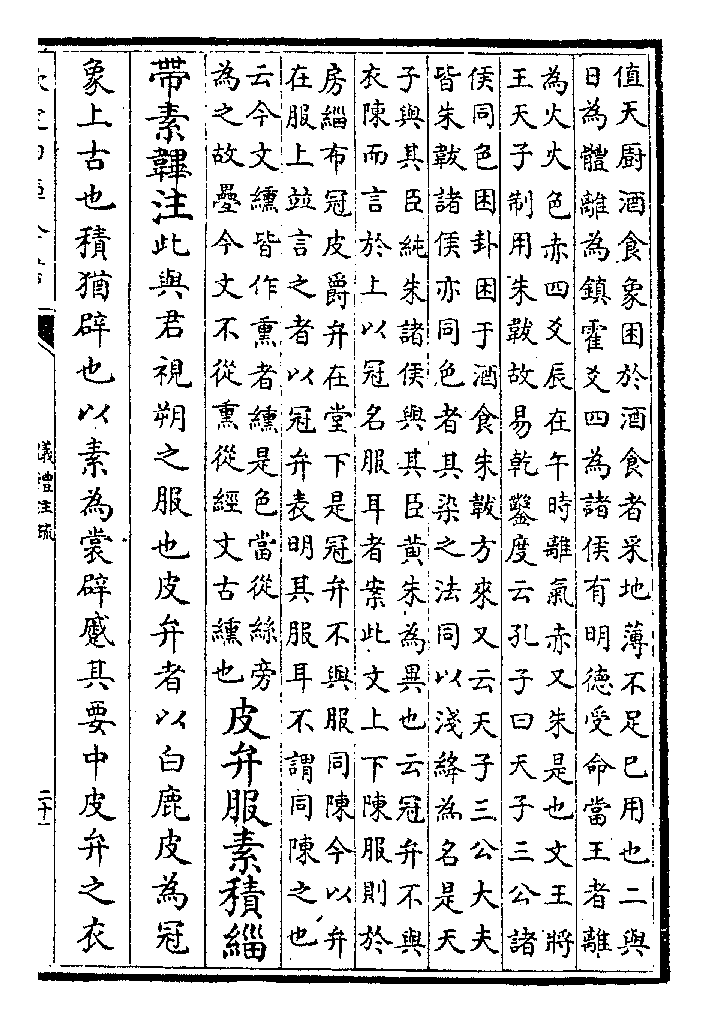 值天厨酒食象困於酒食者采地薄不足已用也二與
日為體離為鎮霍爻四為諸侯有明德受命當王者離
為火火色赤四爻辰在午時離氣赤又朱是也文王將
王天子制用朱韍故易乾鑿度云孔子曰天子三公諸
侯同色困卦困于酒食朱韍方來又云天子三公大夫
皆朱韍諸侯亦同色者其染之法同以淺絳為名是天
子與其臣純朱諸侯與其臣黄朱為異也云冠弁不與
衣陳而言於上以冠名服耳者案此文上下陳服則於
房緇布冠皮爵弁在堂下是冠弁不與服同陳今以弁
在服上並言之者以冠弁表明其服耳不謂同陳之也
云今文纁皆作熏者纁是色當從絲旁
為之故疊今文不從熏從經文古纁也
皮弁服素積緇
帶素韠注此與君視朔之服也皮弁者以白鹿皮為冠
象上古也積猶辟也以素為裳辟蹙其要中皮弁之衣
儀禮注疏